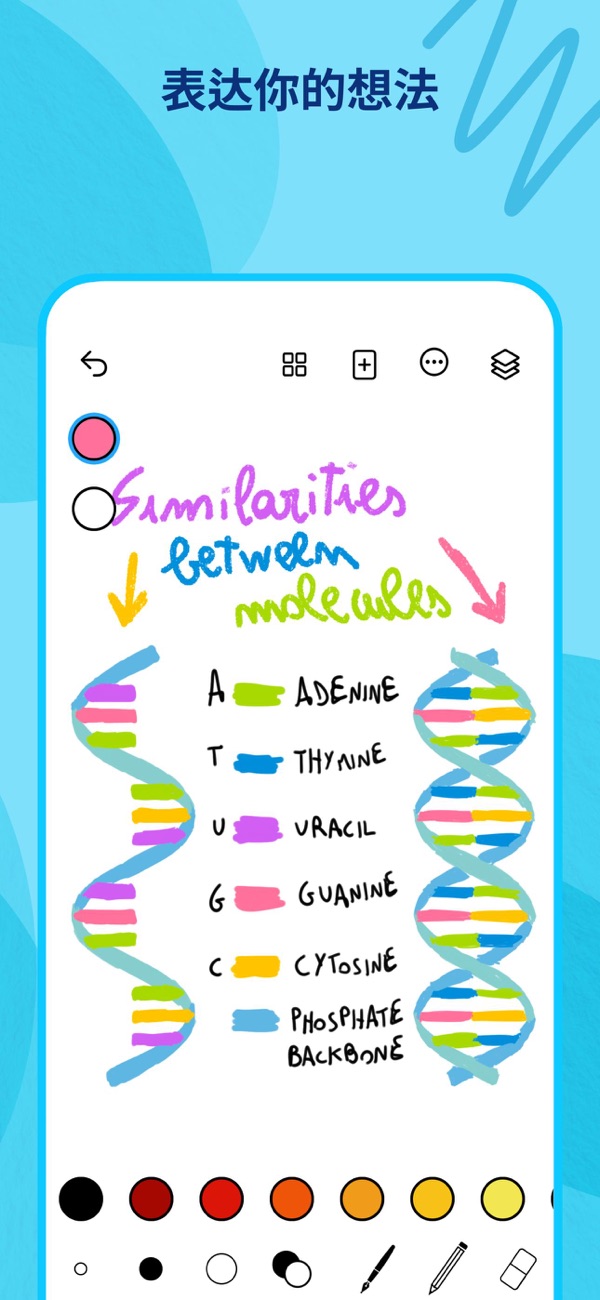 表达你的想法
Similarities
between
molecules
A ADENINE
T THYMINE
U URACIL
G GUANINE
C CYTOSINE
PHOSPHATE
BACKBONE